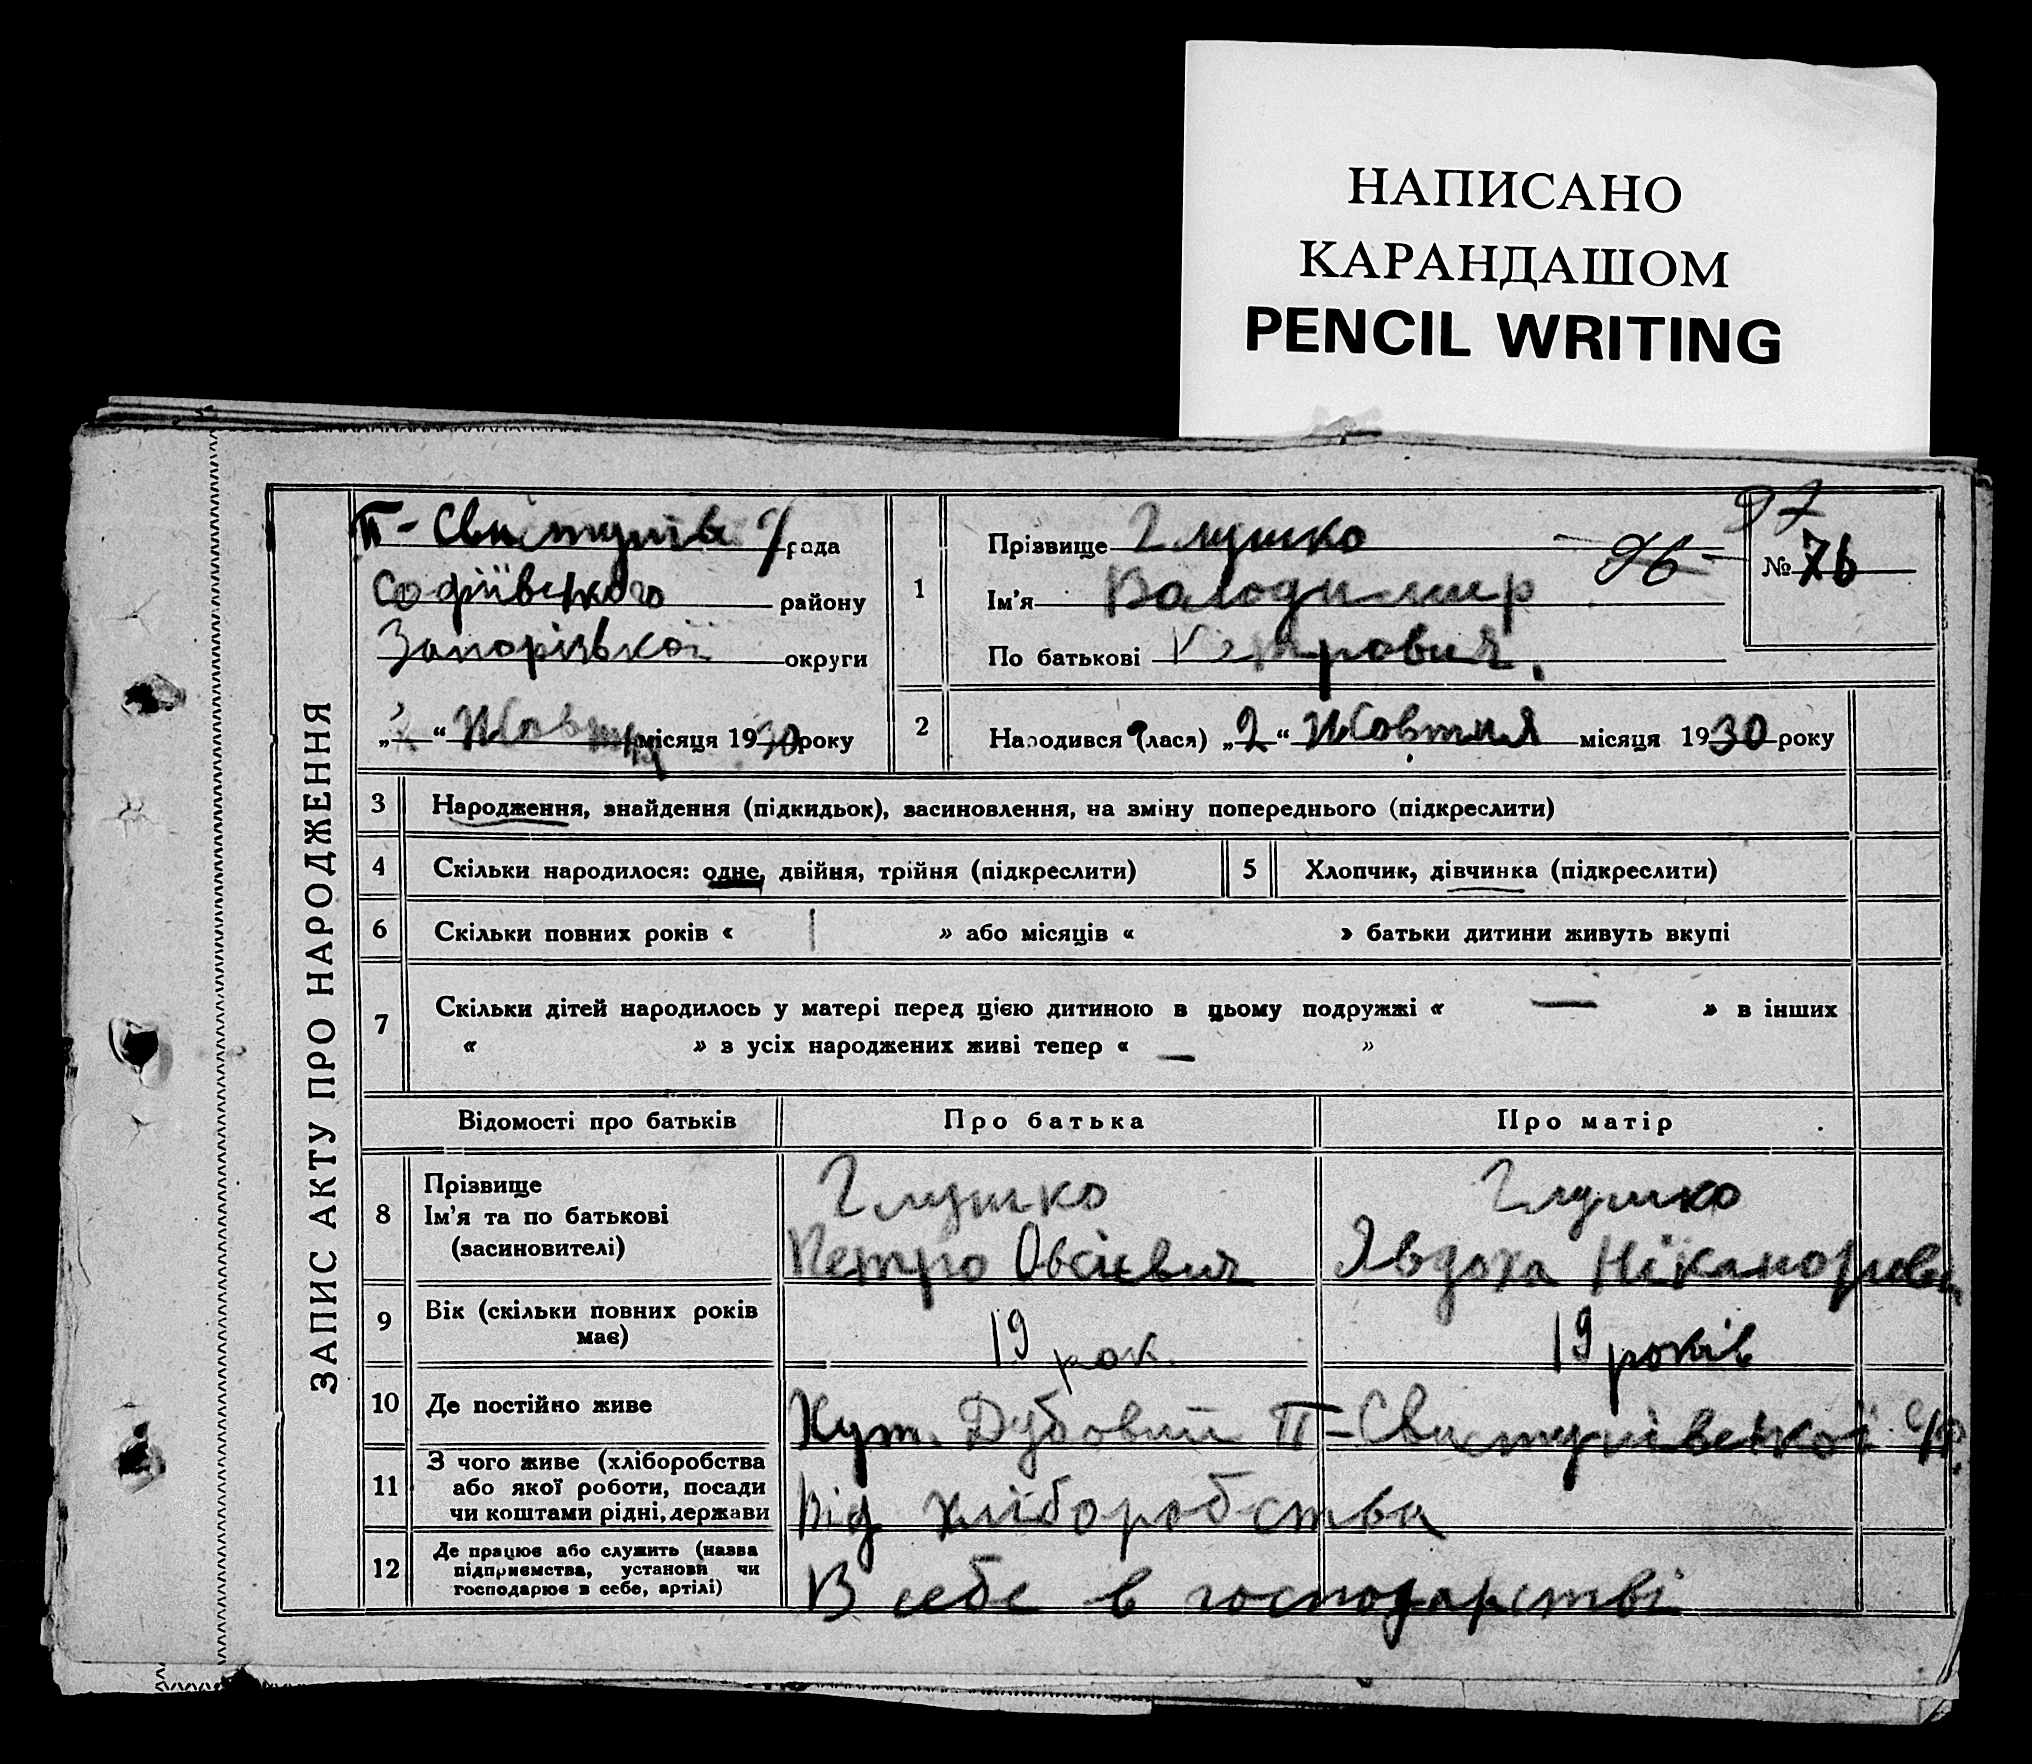 НАПИСАНО
КАРАНДАШОМ
PENCIL WRITING
ЗАПИС АКТУ ПРО НАРОДЖЕННЯ
ІІ-Свистунів с/рада
Софіївського району
Запорізької округи
„2“ Жовтня місяця 1930 року
1
Прізвище Глушко
Ім'я Володимир
По батькові Петрович.
96
97
№ 76
2
Народився (лася) „2“ Жовтня місяця 1930 року
3 Народження, знайдення (підкидьок), засиновлення, на зміну попереднього (підкреслити)
4 Скільки народилося: одне, двійня, трійня (підкреслити)
5 Хлопчик, дівчинка (підкреслити)
6 Скільки повних років « 1 » або місяців « » батьки дитини живуть вкупі
7 Скільки дітей народилось у матері перед цією дитиною в цьому подружжі « — » в інших
« » з усіх народжених живі тепер « — »
Відомості про батьків Про батька Про матір
8 Прізвище
Ім'я та по батькові
(засиновителі)
Глушко
Петро Овсієвич
Глушко
Явдоха Ніканоровн
9 Вік (скільки повних років
має)
19 рок.
19 років
10 Де постійно живе Хут. Дубовий ІІ-Свистунівської с/р.
11 З чого живе (хліборобства
або якої роботи, посади
чи коштами рідні, держави
Від хліборобства
12 Де працює або служить (назва
підприємства, установи чи
господарює в себе, артілі)
В себе в господарстві